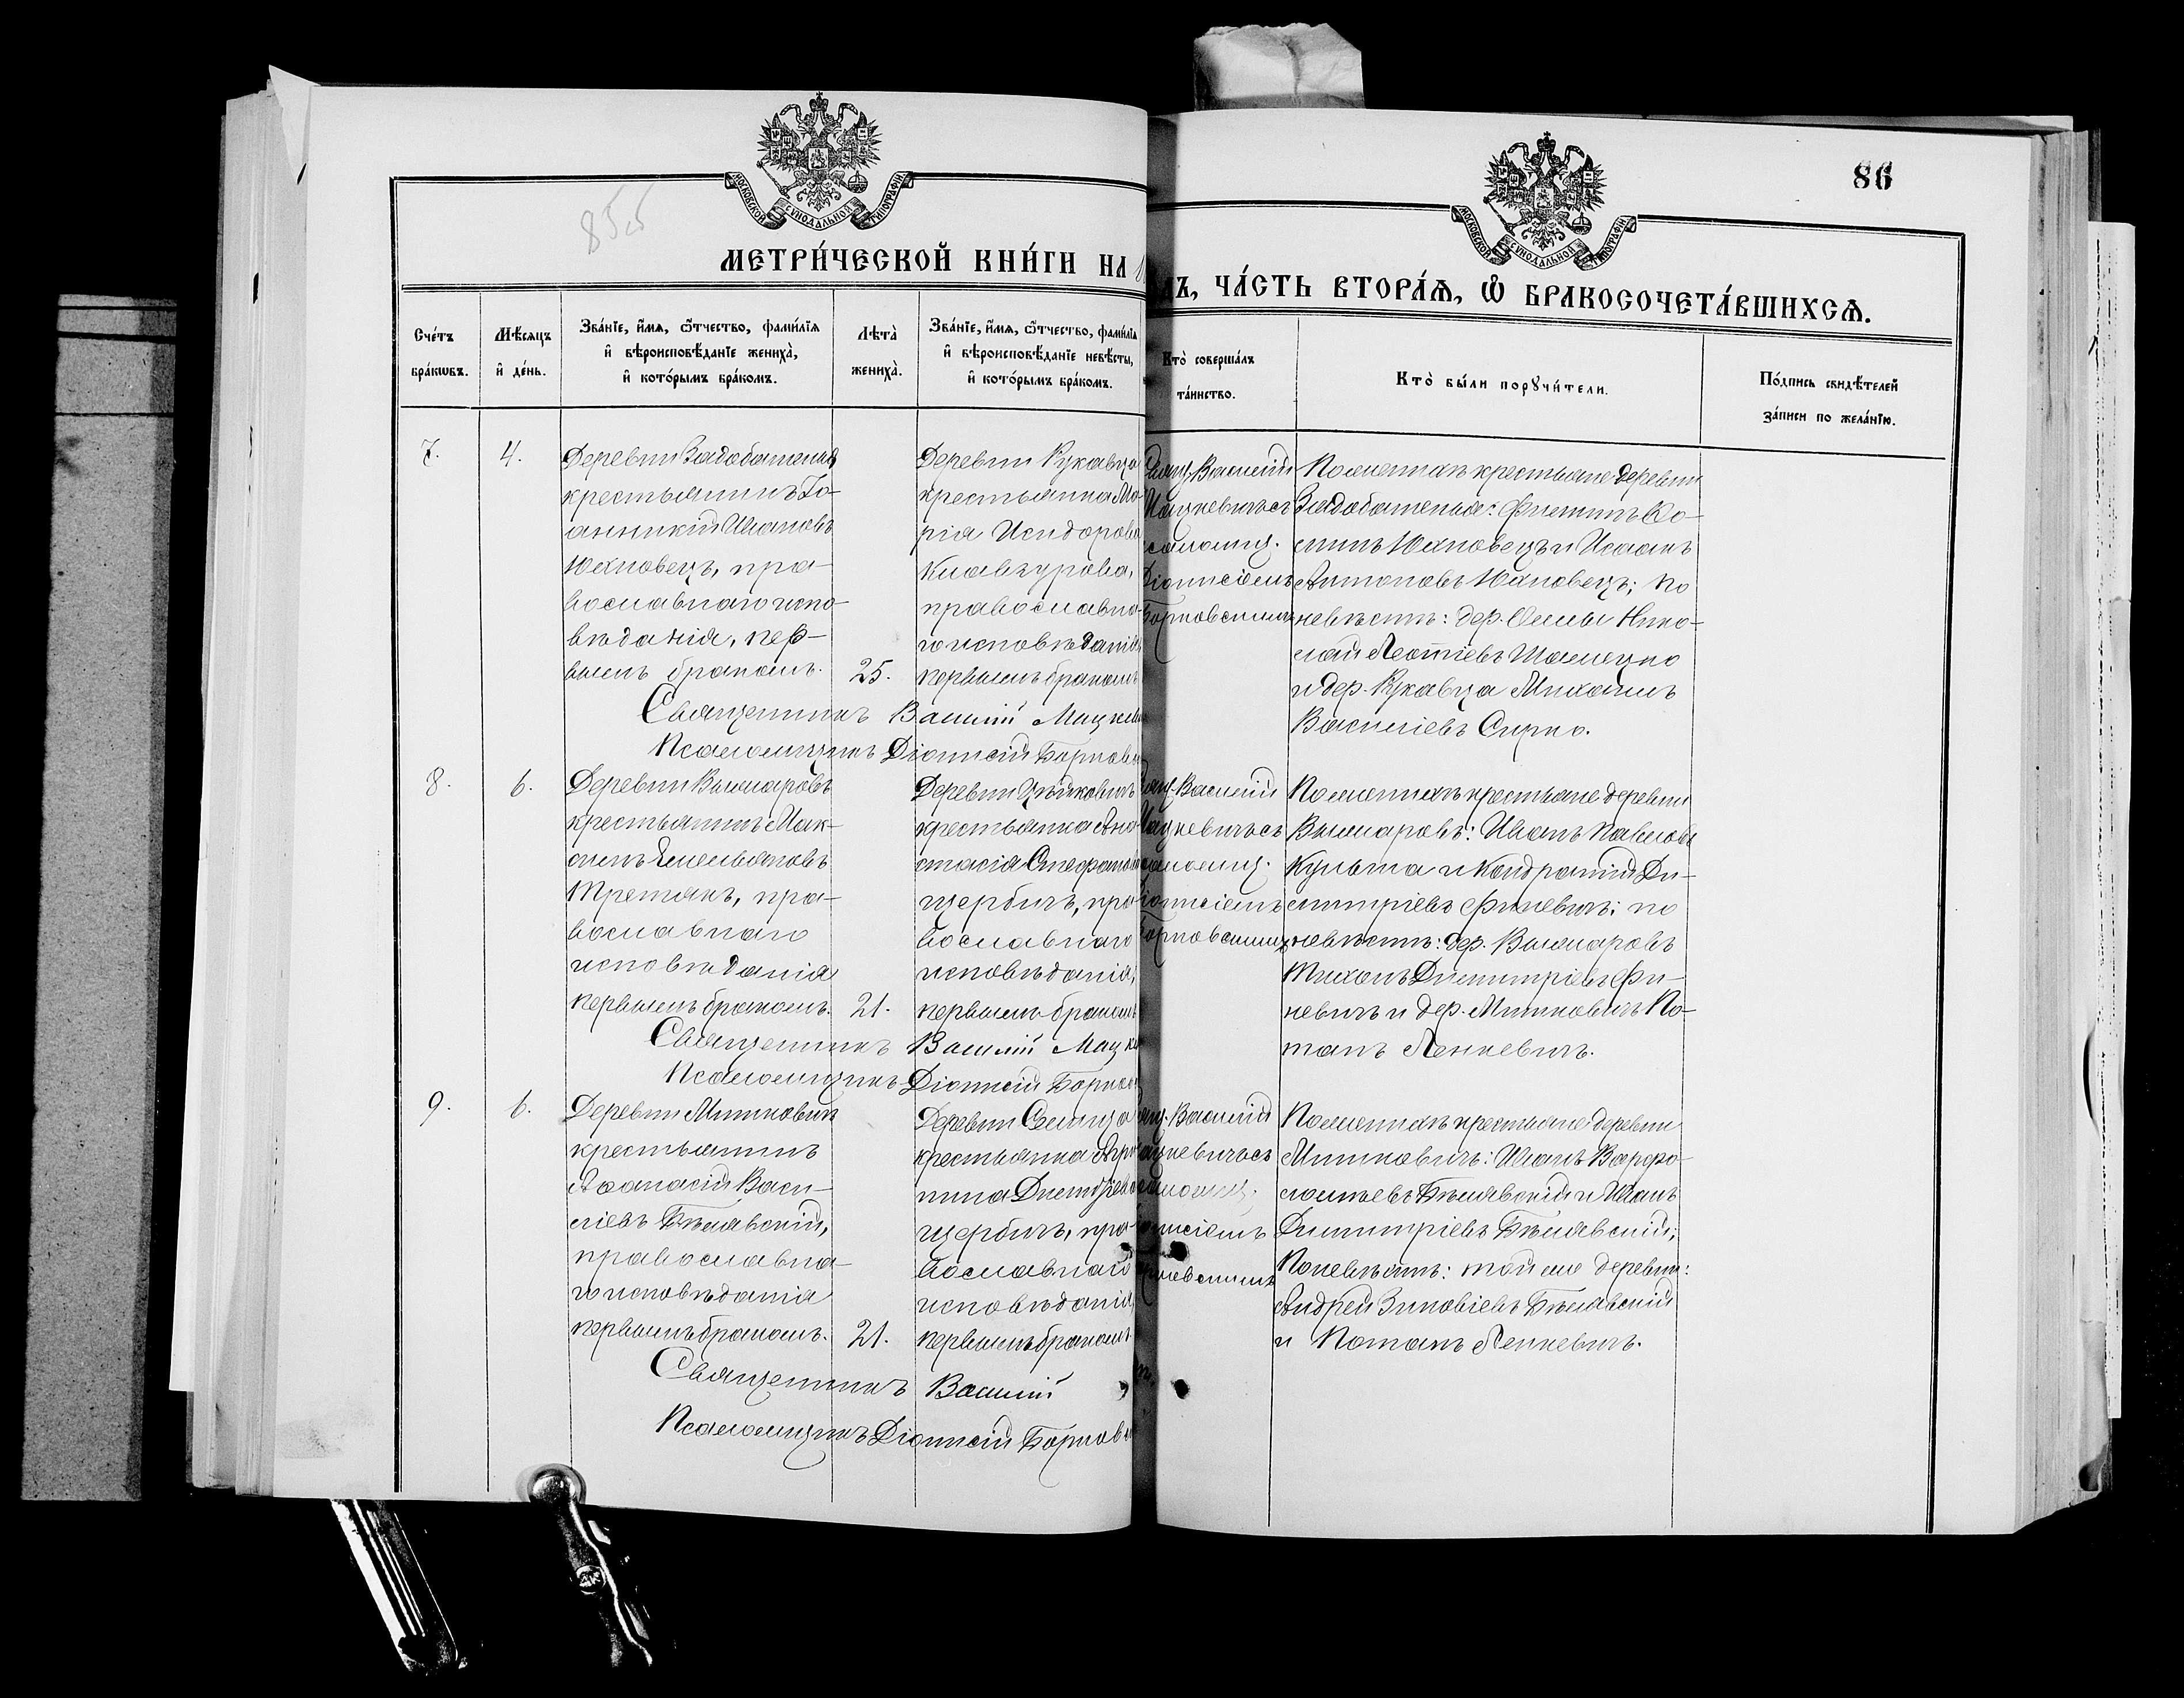 855
86
МОСКОВСКОЙ СѴНОДАЛЬНОЙ ТИПОГРАФІИ
МОСКОВСКОЙ СѴНОДАЛЬНОЙ ТИПОГРАФІИ
МЕТРИ́ЧЕСКОЙ КНИ́ГИ НА
ЧА́СТЬ ВТОРА́Я, Ѡ҆ БРАКОСОЧЕТА́ВШИХСЯ.
Сче́тъ бра́кѡвъ.
Мѣ́сяцъ и҆ де́нь.
Зва́нїе, и҆́мя, ѻ҆́тчество, фами́лїя и҆ вѣроисповѣ́данїе жениха̀, и҆ кото́рымъ бра́комъ.
Лѣ́та жениха̀.
Зва́нїе, и҆́мя, ѻ҆́тчество, фами́лїя и҆ вѣроисповѣ́данїе невѣ́сты, и҆ кото́рымъ бра́комъ.
Кто̀ соверша́лъ та́инство.
Кто̀ бы́ли порꙋчи́тели.
По́дпись свидѣ́телей за́писи по жела́нїю.
7.
4.
Деревни Задобашенья
крестьянинъ Іо-
анникій Ивановъ
Юхновецъ, пра-
вославнаго испо-
вѣданія, пер-
вымъ бракомъ.
25.
Деревни Кукавца
крестьянка Ма-
рія Исидорова
православна-
го исповѣданія,
первымъ бракомъ
Василій
псаломщ.
Діонисіемъ
По женихѣ крестьяне деревни
Задобашенья: Филиппъ Ѳо-
минъ Юхновецъ и Исаакъ
Антоновъ Юхновецъ; по
невѣстѣ: дер. Нико-
лай Леонтіевъ
и дер. Кукавца Михаилъ
Василіевъ Сирко.
Священникъ Василій
Псаломщикъ Діонисій
8.
6.
Деревни Вымпаровъ
крестьянинъ Мак-
симъ Емельяновъ
Третьякъ, пра-
вославнаго
исповѣданія
первымъ бракомъ.
21.
Деревни
крестьянка Ана-
стасія Стефанова
Щербичъ, пра-
вославнаго
исповѣданія,
первымъ бракомъ
Василій
По женихѣ крестьяне деревни
Иванъ Павловъ
и Кондратій Ди-
митріевъ Финевичъ; по
невѣстѣ: дер.
Тихонъ Димитріевъ Фи-
невичъ и дер. Минковичъ По-
тапъ Ленкевичъ.
Священникъ Василій
Псаломщикъ Діонисій
9.
6.
Деревни Минковичъ
крестьянинъ
Аѳанасій Васи-
ліевъ Бѣлявскій,
православна-
го исповѣданія
первымъ бракомъ.
21.
Деревни
крестьянка Агри-
пина Дмитріева
Щербичъ, пра-
вославнаго
исповѣданія,
первымъ бракомъ
Василій
По женихѣ крестьяне деревни
Минковичъ: Иванъ Варфо-
ломѣевъ Бѣлявскій и Иванъ
Димитріевъ Бѣлявскій;
По невѣстѣ: той же деревни:
Андрей Зиновіевъ Бѣлявскій
и Потапъ Ленкевичъ.
Священникъ Василій
Псаломщикъ Діонисій